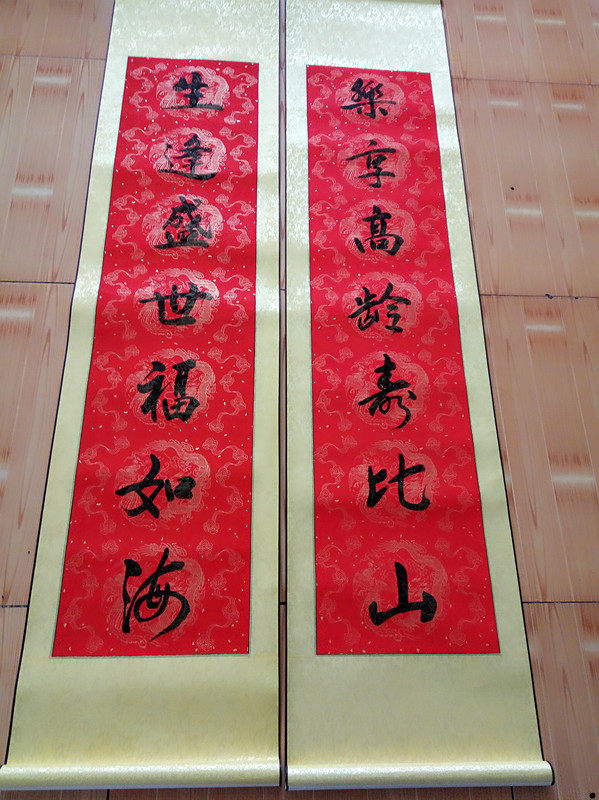 樂享高龄寿比山
生逢盛世福如海